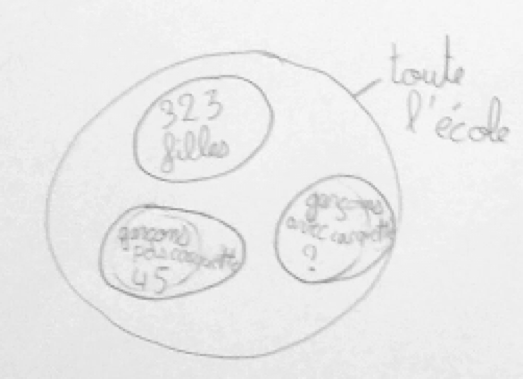 toute
l'école
323
filles
garçons
avec casquette
?
garçons
pas casquette
45